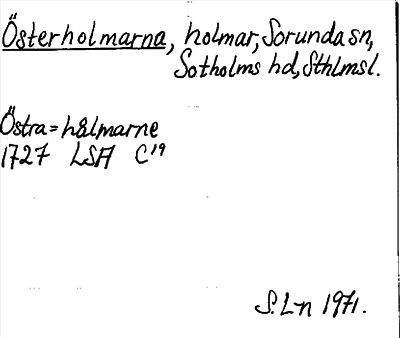 Österholmarna, holmar, Sorunda sn,
Sotholms hd, Sthlmsl.
Östra=hålmarne
1727 LSA C¹⁹
S. L-n 1971.